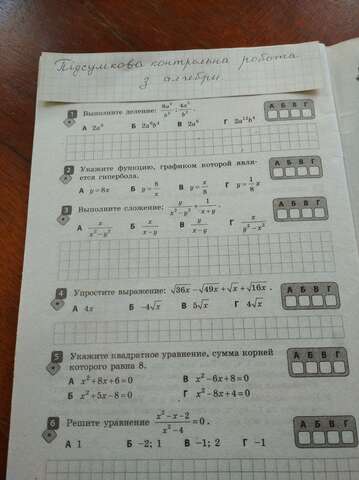 Підсумкова контрольна робота
з алгебри
1 Выполните деление: : 
А Б В Г
А 2a⁶ Б 2a⁶b⁴ В 2a⁴ Г 2a¹²b⁴
2 Укажите функцию, графиком которой явля-
ется гипербола.
А Б В Г
А y=8x Б y=8/x В y=x/8 Г y=1/8 x
3 Выполните сложение: y/(x²−y²) + 1/(x+y).
А Б В Г
А x/(x²−y²) Б x/(x−y) В y/(x−y) Г x/(y²−x²)
4 Упростите выражение: √36x −√49x +√x +√16x.
А Б В Г
А 4x Б −4√x В 5√x Г 4√x
5 Укажите квадратное уравнение, сумма корней
которого равна 8.
А Б В Г
А x²+8x+6=0 В x²−6x+8=0
Б x²+5x−8=0 Г x²−8x+4=0
6 Решите уравнение (x²−x−2)/(x²−4)=0.
А Б В Г
А 1 Б −2; 1 В −1; 2 Г −1